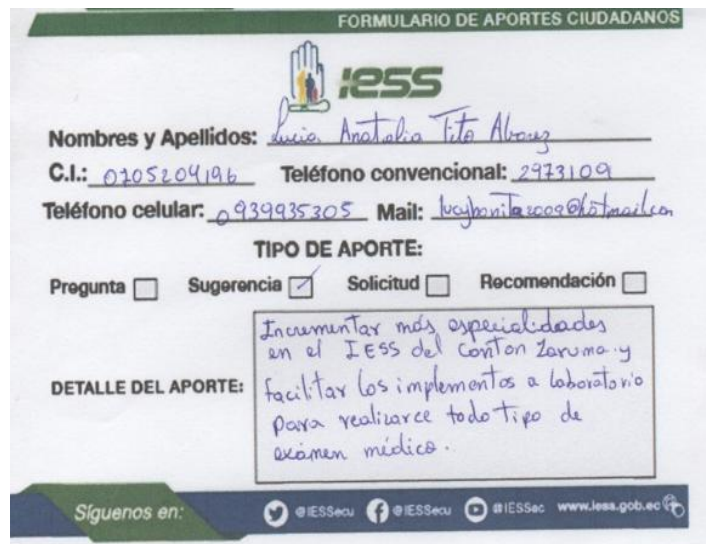 FORMULARIO DE APORTES CIUDADANOS
IESS
Nombres y Apellidos: Lucia Anatalia Tito Alvarez
C.I.: 0705204196 Teléfono convencional: 2973109
Teléfono celular: 0939935305 Mail: lucybonita2009@hotmail.com
TIPO DE APORTE:
Pregunta Sugerencia Solicitud Recomendación
Incrementar más especialidades
en el IESS del Canton Zaruma y
DETALLE DEL APORTE: facilitar los implementos a laboratorio
para realizarce todo tipo de
exámen médico.
Síguenos en: @IESSecu @IESSecu @IESSec www.iess.gob.ec